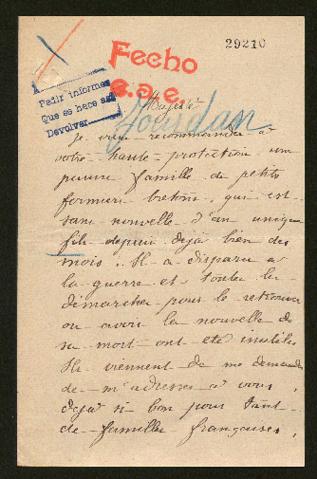 29210
Fecho
e.a.e.
Pedir informes
Que se hace así
Devolver
Majesté
Jourdan
Je viens recommander à
votre haute protection une
pauvre famille de petits
fermiers bretons, qui est
sans nouvelle d'un unique
fils depuis déjà bien des
mois. Il a disparu à
la guerre et toutes les
démarches pour le retrouver
ou avoir la nouvelle de
sa mort ont été inutiles
Ils viennent de me demander
de m'adresser à vous,
déjà si bon pour tant
de familles françaises,